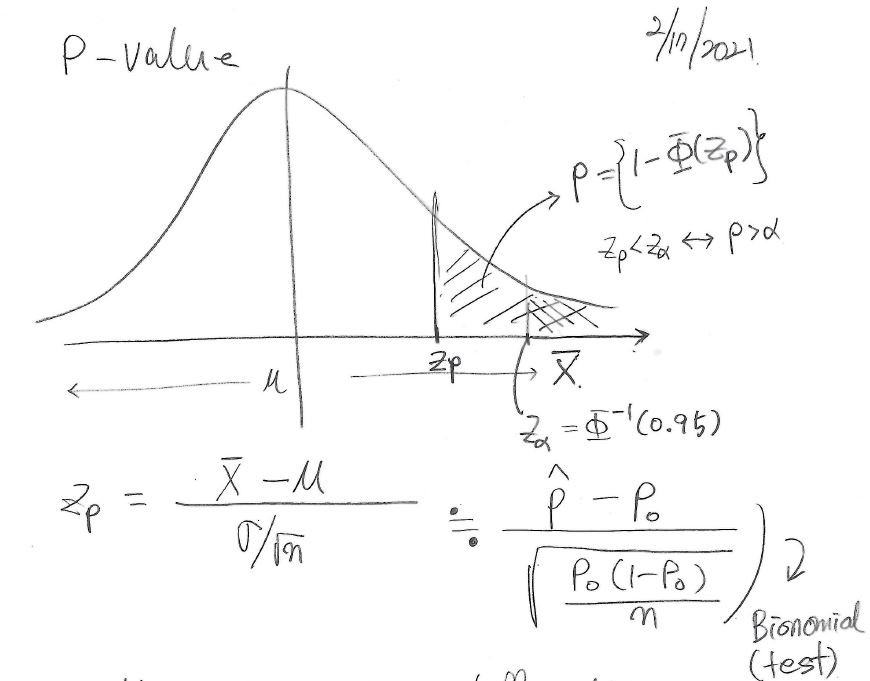 P-value
2/17/2021.
P = {1 - Φ(Zp)}
Zp < Zα ↔ P > α
Zp
X̄.
μ
Zα = Φ⁻¹(0.95)
Zp = (X̄ - μ) / (σ/√n) ≒ (p̂ - P₀) / √(P₀(1-P₀)/n)
Bionomial
(test)